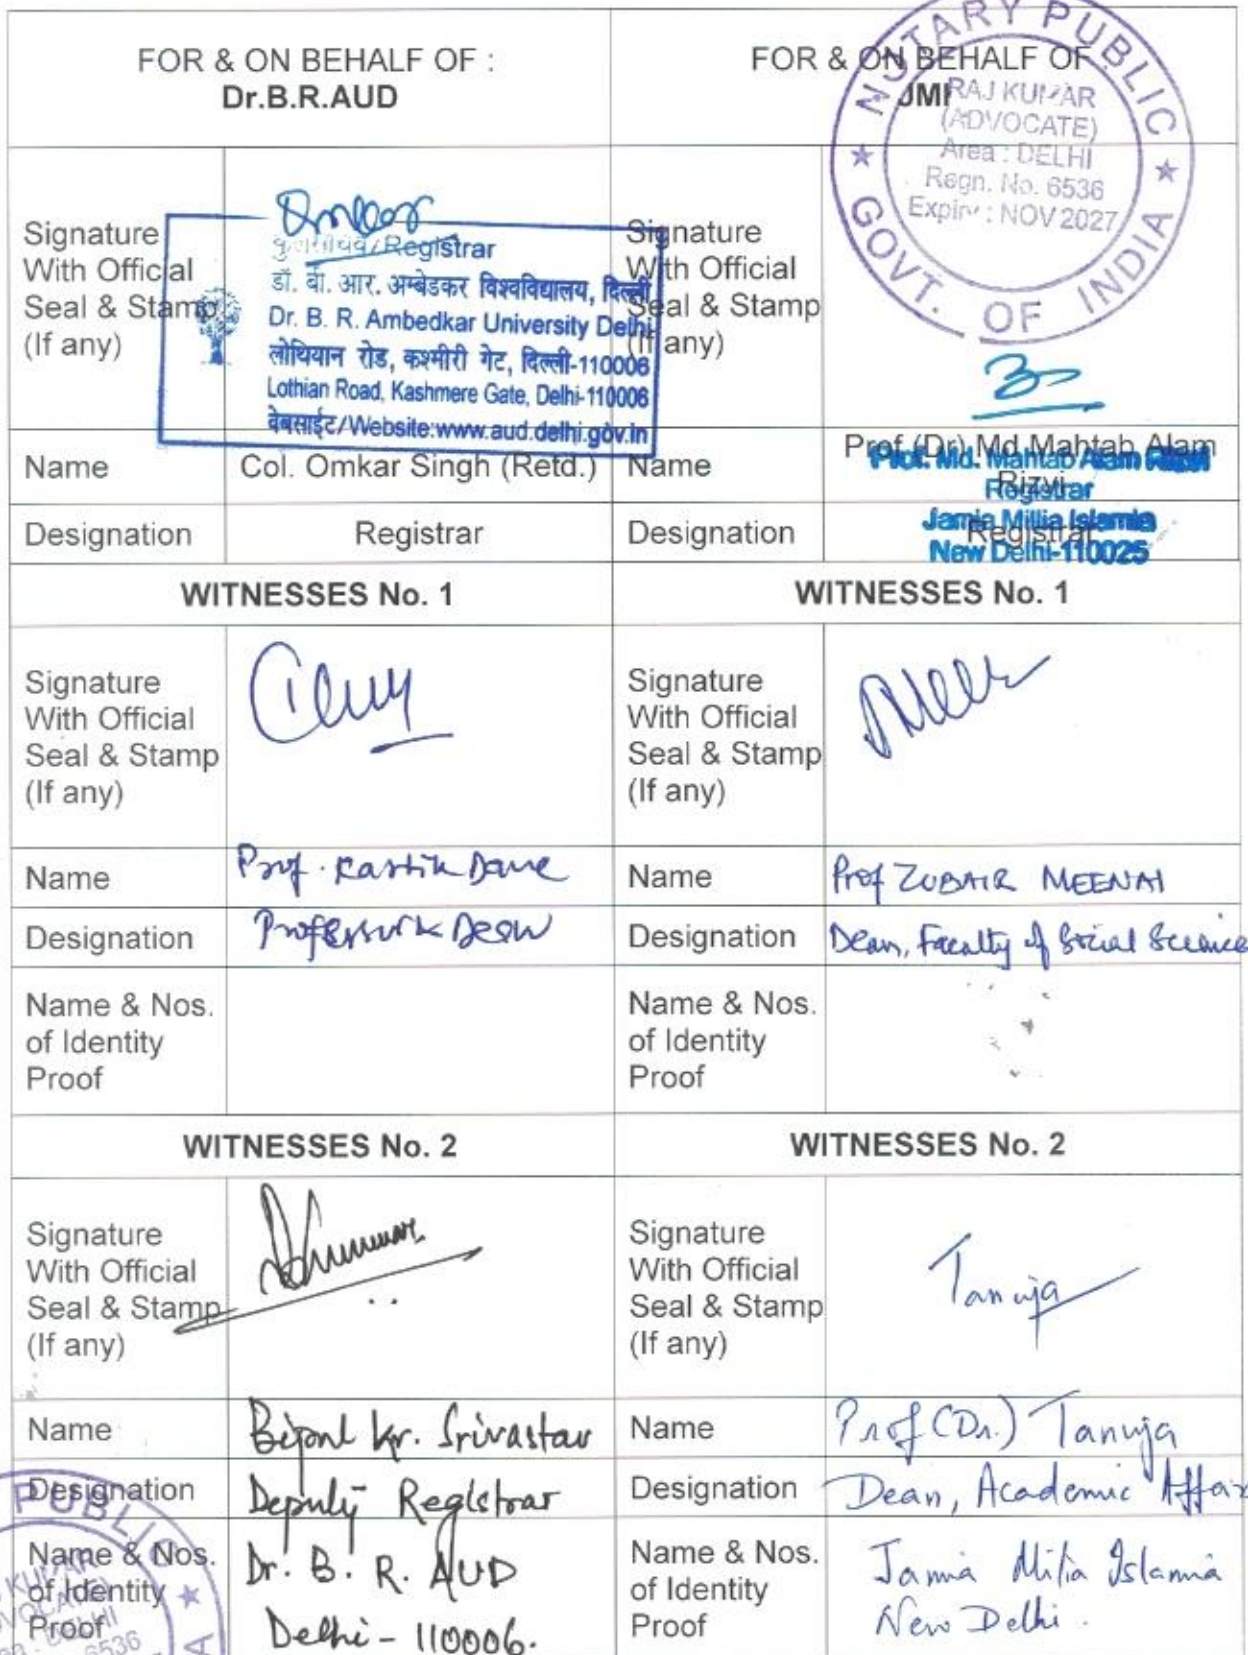 FOR & ON BEHALF OF :
Dr.B.R.AUD
FOR & ON BEHALF OF
JMI
NOTARY PUBLIC
GOVT. OF INDIA
RAJ KUMAR
(ADVOCATE)
Area : DELHI
Regn. No. 6536
Expiry : NOV 2027
Signature
With Official
Seal & Stamp
(If any)
कुलसचिव/Registrar
डॉ. बी. आर. अम्बेडकर विश्वविद्यालय, दिल्ली
Dr. B. R. Ambedkar University Delhi
लोथियान रोड, कश्मीरी गेट, दिल्ली-110006
Lothian Road, Kashmere Gate, Delhi-110006
वेबसाईट/Website:www.aud.delhi.gov.in
Signature
With Official
Seal & Stamp
(If any)
Name
Col. Omkar Singh (Retd.)
Name
Prof.(Dr) Md Mahtab Alam
Rizvi
Prof. Md. Mahtab Alam Rizvi
Registrar
Jamia Millia Islamia
New Delhi-110025
Designation
Registrar
Designation
Registrar
WITNESSES No. 1
WITNESSES No. 1
Signature
With Official
Seal & Stamp
(If any)
Signature
With Official
Seal & Stamp
(If any)
Name
Prof. Kartik Dave
Name
Prof ZUBAIR MEENAI
Designation
Professor &
Designation
Dean, Faculty of Social Science
Name & Nos.
of Identity
Proof
Name & Nos.
of Identity
Proof
WITNESSES No. 2
WITNESSES No. 2
Signature
With Official
Seal & Stamp
(If any)
Signature
With Official
Seal & Stamp
(If any)
Tanuja
Name
Kr. Srivastav
Name
Prof (Dr.) Tanuja
Designation
Deputy Registrar
Designation
Dean, Academic Affair
Name & Nos.
of Identity
Proof
Dr. B. R. AUD
Delhi - 110006.
Name & Nos.
of Identity
Proof
Jamia Milia Islamia
New Delhi.
PUBLIC
KUMAR
DELHI
6536